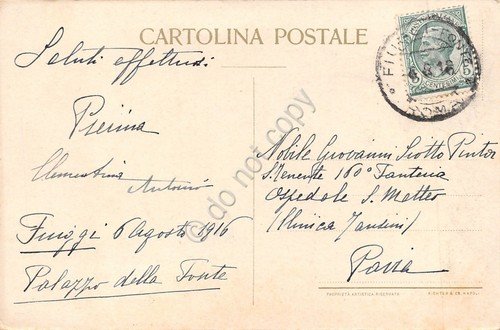 CARTOLINA POSTALE
Saluti affettuosi
Pierina
Clementina
Antonio
Fiuggi 6 Agosto 1916
Palazzo della Fonte
Nobile Giovanni Siotto Pintor
S. Tenente 160° Fanteria
Ospedale S. Matteo
(Clinica Tansini)
Pavia
PROPRIETÀ ARTISTICA RISERVATA
RICHTER & C.o NAPOLI
do not copy